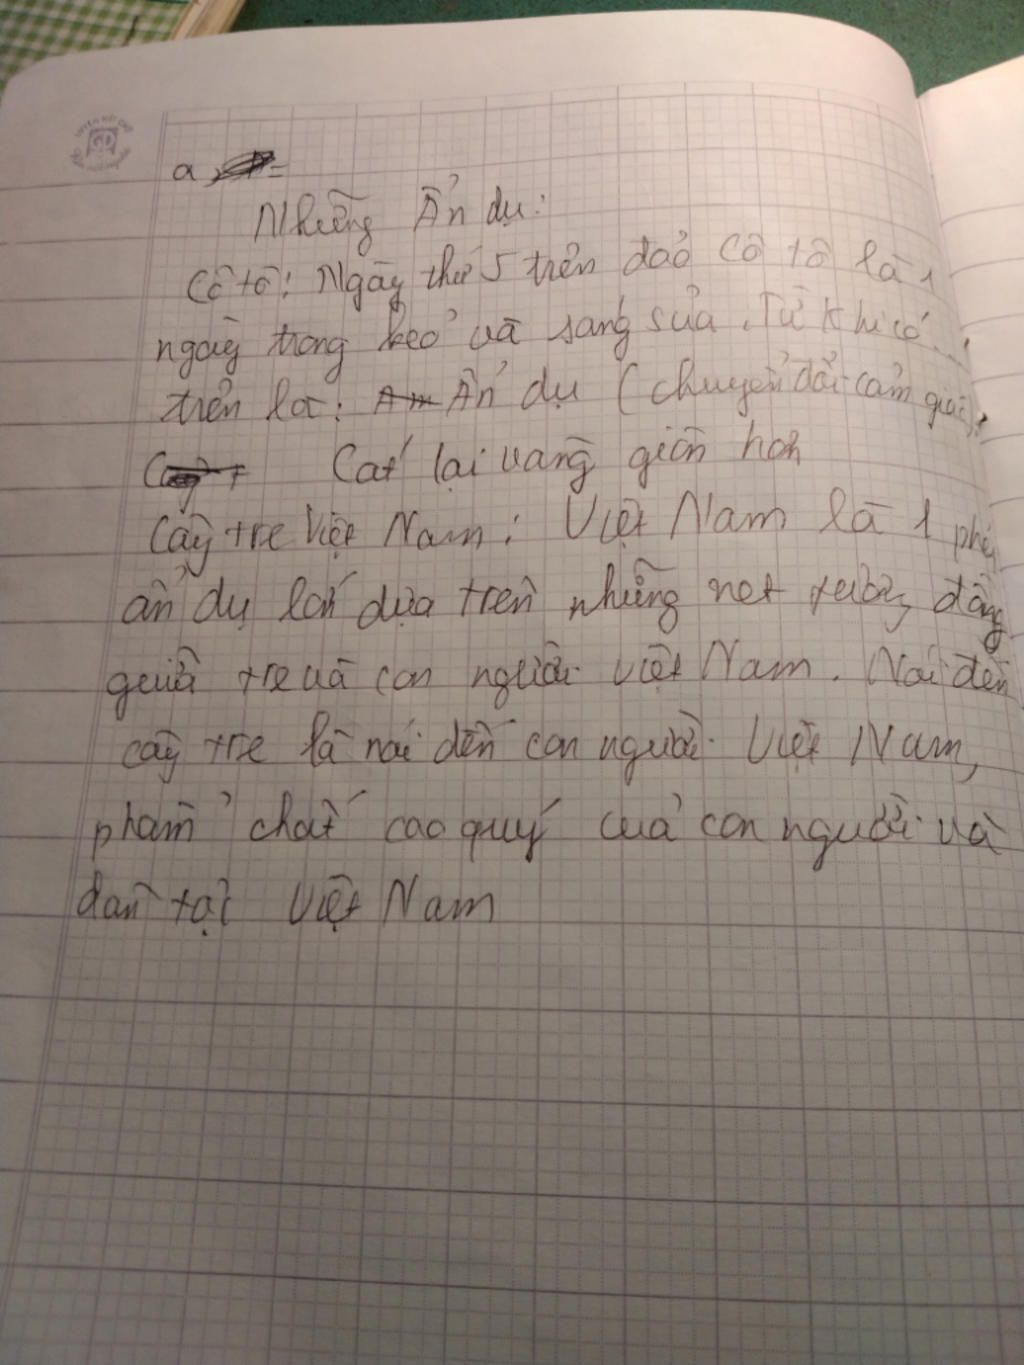 a
Những Ẩn dụ:
Cô tô: Ngày thứ 5 trên đảo Cô tô là 1
ngày trong kẻo và sáng sủa. Từ khi có...
trên là: Ẩn dụ (chuyển đổi cảm giác):
Cát lại vàng giòn hơn
Cây tre Việt Nam: Việt Nam là 1 phép
ẩn dụ lớn dựa trên những nét tương đồng
giữa tre và con người Việt Nam. Nói đến
cây tre là nói đến con người Việt Nam,
phẩm chất cao quý của con người và
dân tại Việt Nam